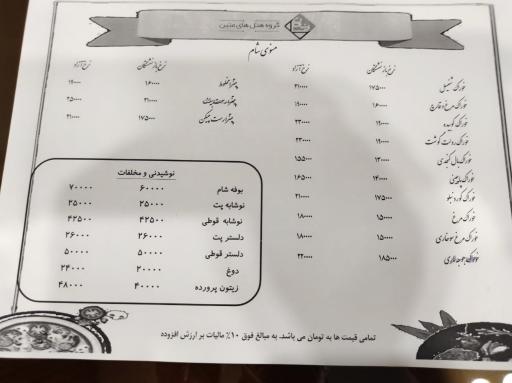 گروه هتل های متین
منوی شام
نرخ بازنشستگان نرخ آزاد
خوراک شنیسل ۱۷۵۰۰۰ ۲۱۰۰۰۰
خوراک مرغ و قارچ ۱۶۰۰۰۰ ۱۹۰۰۰۰
خوراک کوبیده ۱۹۰۰۰۰ ۲۳۰۰۰۰
خوراک رولت گوشت ۱۹۰۰۰۰ ۲۳۰۰۰۰
خوراک بال کبابی ۱۳۰۰۰۰ ۱۵۵۰۰۰
خوراک ۱۴۰۰۰۰ ۱۶۵۰۰۰
خوراک گوردن بلو ۱۷۵۰۰۰ ۲۱۰۰۰۰
خوراک مرغ ۱۵۰۰۰۰ ۱۸۰۰۰۰
خوراک مرغ سوخاری ۱۵۰۰۰۰ ۱۸۰۰۰۰
خوراک ۱۸۵۰۰۰ ۲۲۰۰۰۰
نرخ بازنشستگان نرخ آزاد
پیتزا مخلوط ۱۶۰۰۰۰ ۱۹۰۰۰۰
پیتزا ۲۱۰۰۰۰ ۲۵۰۰۰۰
پیتزا رست چیکن ۱۷۵۰۰۰ ۲۱۰۰۰۰
نوشیدنی و مخلفات
بوفه شام ۶۰۰۰۰ ۷۰۰۰۰
نوشابه پت ۲۵۰۰۰ ۲۵۰۰۰
نوشابه قوطی ۴۲۵۰۰ ۴۲۵۰۰
دلستر پت ۲۶۰۰۰ ۲۶۰۰۰
دلستر قوطی ۵۰۰۰۰ ۵۰۰۰۰
دوغ ۲۰۰۰۰ ۲۴۰۰۰
زیتون پرورده ۴۰۰۰۰ ۴۸۰۰۰
تمامی قیمت ها به تومان می باشد. به مبالغ فوق ۱۰٪ مالیات بر ارزش افزوده